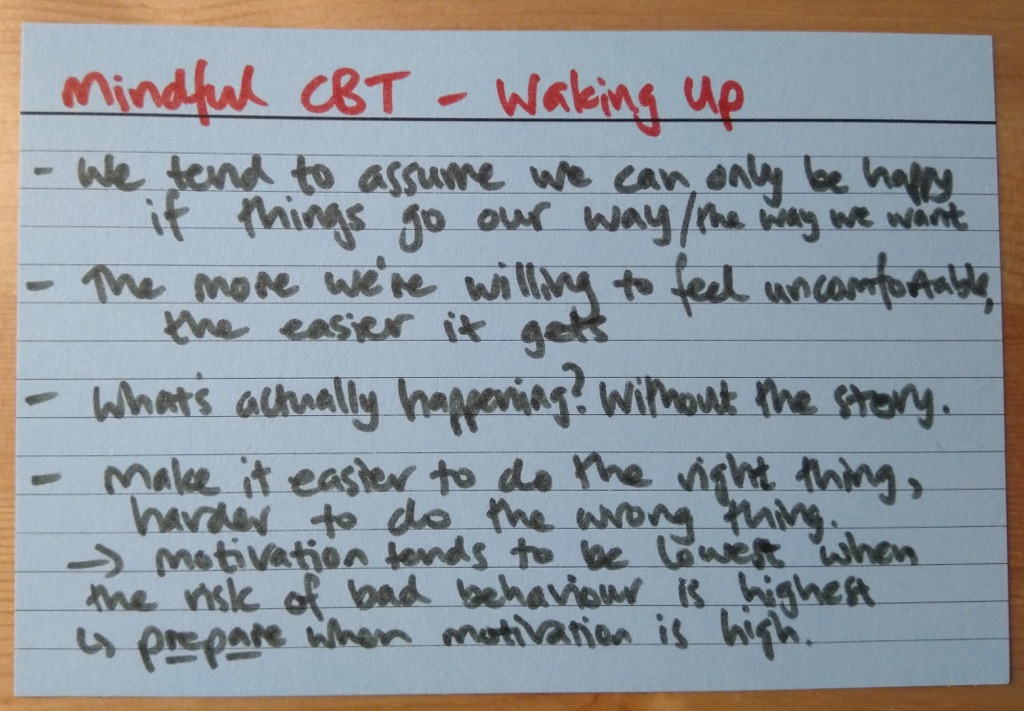 Mindful CBT - Waking Up
- We tend to assume we can only be happy
if things go our way/the way we want
- The more we're willing to feel uncomfortable,
the easier it gets
- What's actually happening? Without the story.
- Make it easier to do the right thing,
harder to do the wrong thing.
→ motivation tends to be lowest when
the risk of bad behaviour is highest
↳ prepare when motivation is high.